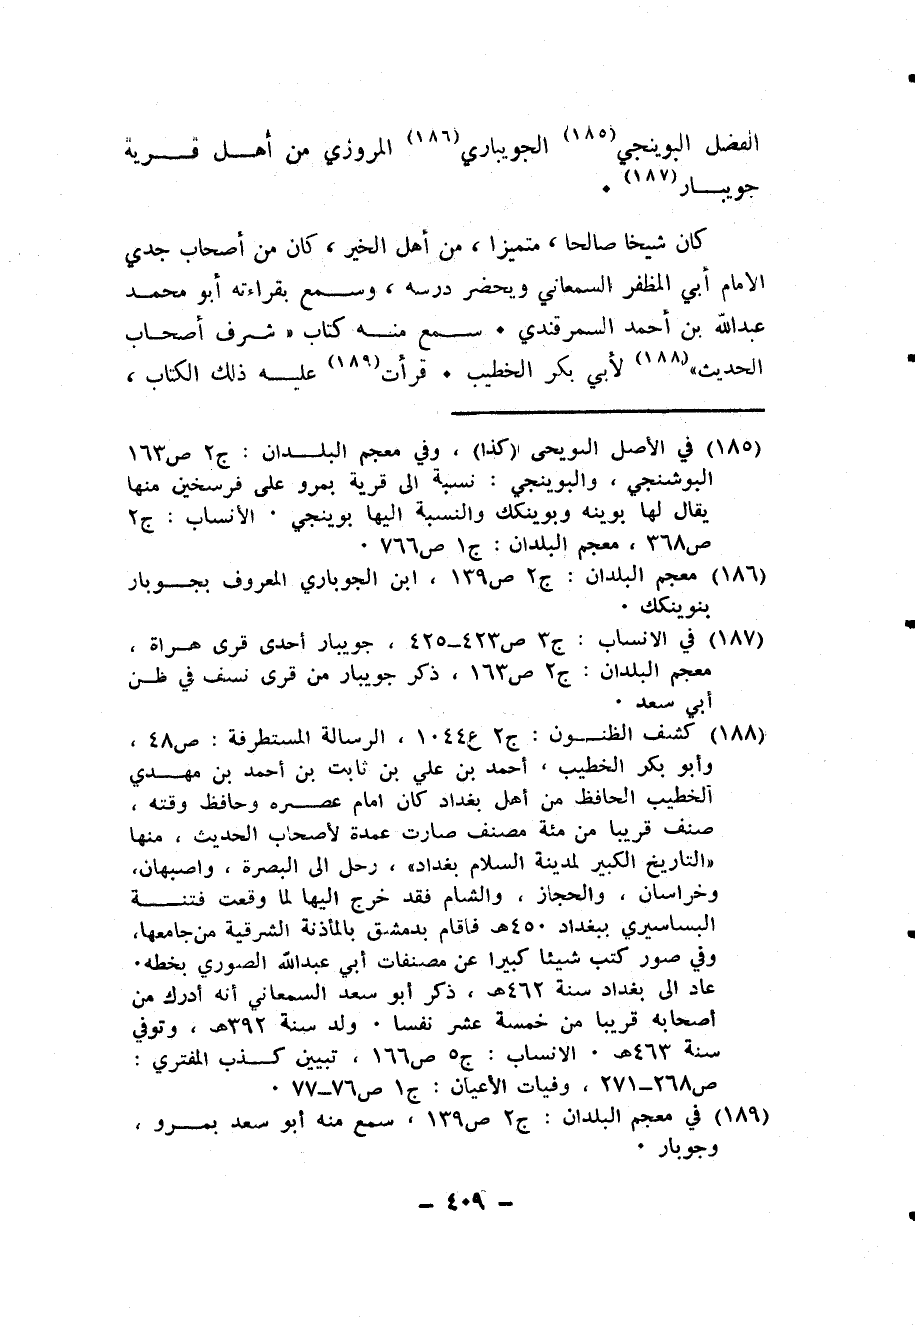 الفضل البوينجي(١٨٥) الجويباري(١٨٦) المروزي من أهل قرية
جويبار(١٨٧) ٠
كان شيخا صالحا ، متميزا ، من أهل الخير ، كان من أصحاب جدي
الامام أبي المظفر السمعاني ويحضر درسه ، وسمع بقراءته أبو محمد
عبدالله بن أحمد السمرقندي ٠ سمع منه كتاب « شرف أصحاب
الحديث»(١٨٨) لأبي بكر الخطيب ٠ قرأت(١٨٩) عليه ذلك الكتاب ،
(١٨٥) في الأصل البويحى (كذا) ، وفي معجم البلدان : ج٢ ص١٦٣
البوشنجي ، والبوينجي : نسبة الى قرية بمرو على فرسخين منها
يقال لها بوينه وبوينكك والنسبة اليها بوينجي ٠ الأنساب : ج٢
ص٣٦٨ ، معجم البلدان : ج١ ص٧٦٦ ٠
(١٨٦) معجم البلدان : ج٢ ص١٣٩ ، ابن الجوباري المعروف بجوبار
بنوينكك ٠
(١٨٧) في الانساب : ج٣ ص٤٢٣ــ٤٢٥ ، جويبار أحدى قرى هراة ،
معجم البلدان : ج٢ ص١٦٣ ، ذكر جويبار من قرى نسف في ظن
أبي سعد ٠
(١٨٨) كشف الظنون : ج٢ ع١٠٤٤ ، الرسالة المستطرفة : ص٤٨ ،
وأبو بكر الخطيب ، أحمد بن علي بن ثابت بن أحمد بن مهدي
الخطيب الحافظ من أهل بغداد كان امام عصره وحافظ وقته ،
صنف قريبا من مئة مصنف صارت عمدة لأصحاب الحديث ، منها
«التاريخ الكبير لمدينة السلام بغداد» ، رحل الى البصرة ، واصبهان،
وخراسان ، والحجاز ، والشام فقد خرج اليها لما وقعت فتنة
البساسيري ببغداد ٤٥٠هـ فاقام بدمشق بالمأذنة الشرقية من جامعها،
وفي صور كتب شيئا كبيرا عن مصنفات أبي عبدالله الصوري بخطه٠
عاد الى بغداد سنة ٤٦٢هـ ، ذكر أبو سعد السمعاني أنه أدرك من
أصحابه قريبا من خمسة عشر نفسا ٠ ولد سنة ٣٩٢هـ ، وتوفي
سنة ٤٦٣هـ ٠ الانساب : ج٥ ص١٦٦ ، تبيين كذب المفتري :
ص٢٦٨ــ٢٧١ ، وفيات الأعيان : ج١ ص٧٦ــ٧٧ ٠
(١٨٩) في معجم البلدان : ج٢ ص١٣٩ ، سمع منه أبو سعد بمرو ،
وجوبار ٠
– ٤٠٩ –